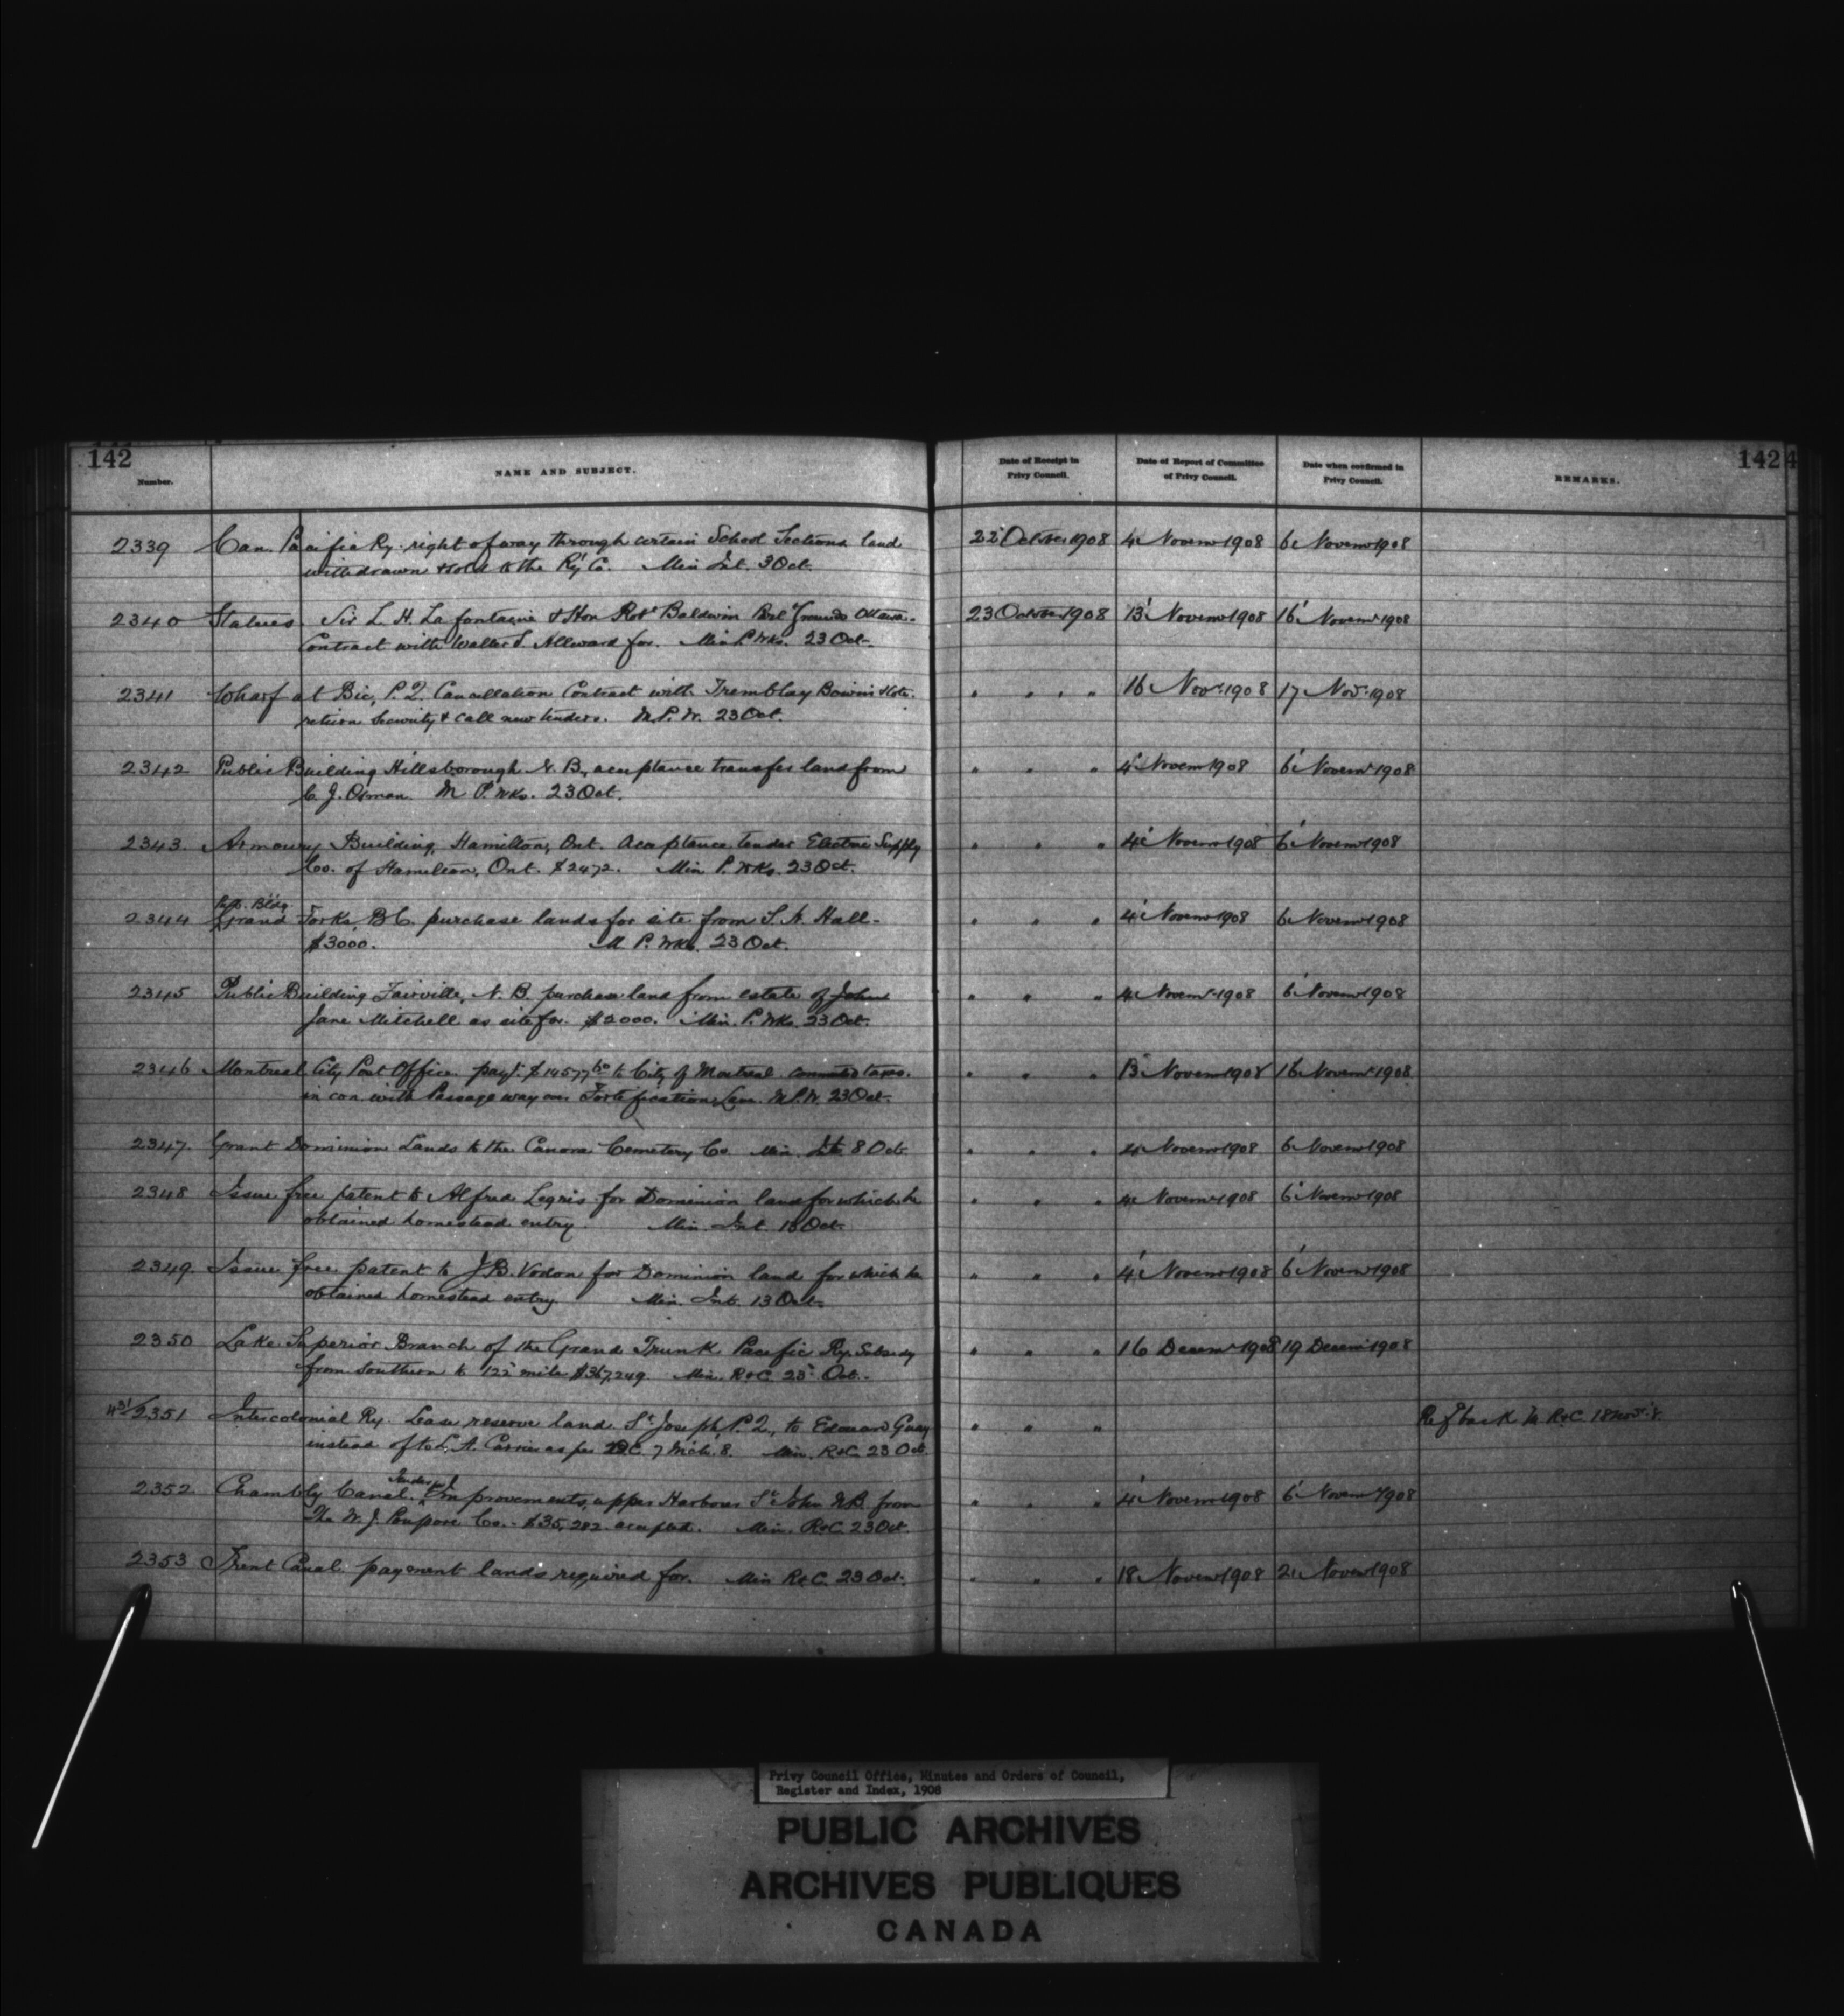 142
Number.
NAME AND SUBJECT.
Date of Receipt in Privy Council.
Date of Report of Committee of Privy Council.
Date when confirmed in Privy Council.
REMARKS.
142
2339 Can. Pacific Ry. right of way through certain School Sections land 22 October 1908 4 Novemr 1908 6 Novemr 1908
withdrawn & sold to the Ry Co. Min Int. 3 Oct.
2340 Statues. Sir L. H. Lafontaine & Hon Robt Baldwin Parl Grounds Ottawa. 23 October 1908 13 Novemr 1908 16 Novemr 1908
Contract with Walter S. Allward for. Min P. Wks. 23 Oct.
2341 Wharf at Bic, P.Q. Cancellation Contract with Tremblay " " " " 16 Novr. 1908 17 Novr. 1908
return Security & call new tenders. M. P. W. 23 Oct.
2342 Public Building Hillsborough N.B., acceptance transfer land from " " " 4 Novem 1908 6 Novemr 1908
C. J. Osman. M P. Wks. 23 Oct.
2343. Armoury Building, Hamilton, Ont. Acceptance tender Electric Supply " " " 4 Novemr 1908 6 Novemr 1908
Co. of Hamilton, Ont. $2472. Min P. Wks. 23 Oct.
Pub. Bldg
2344 Grand Forks, B.C. purchase lands for site from S. A. Hall. " " " 4 Novem 1908 6 Novemr 1908
$3000. M P. Wks. 23 Oct.
2345 Public Building Fairville, N.B. purchase land from estate of John " " " 4 Novemr 1908 6 Novemr 1908
Jane Mitchell as site for. $2000. Min. P. Wks. 23 Oct.
2346 Montreal City Post Office. payt. $14577 60 to City of Montreal commuted taxes. " " " 13 Novemr 1908 16 Novemr 1908
in con. with Passage way over Fortification Lane. M.P.W. 23 Oct.
2347. Grant Dominion Lands to the Canora Cemetery Co. Min. Int 8 Oct. " " " 4 Novemr 1908 6 Novemr 1908
2348 Issue free patent to Alfred Legris for Dominion land for which he " " " 4 Novemr 1908 6 Novemr 1908
obtained homestead entry. Min. Int. 18 Oct.
2349. Issue free patent to J. B. Vodon for Dominion land for which he " " " 4 Novemr 1908 6 Novemr 1908
obtained homestead entry Min. Int. 13 Oct.
2350 Lake Superior Branch of the Grand Trunk Pacific Ry. Subsidy " " " 16 Decemr 1908 19 Decemr 1908
from southern to 122 mile $367,249. Min. R&C. 23 Oct.
2351 Intercolonial Ry. Lease reserve land St Joseph P.Q., to Edouard Guay " " " Ref back M R&C. 18 Novr. 8
instead of to L. A. Carrier as per OC. 7 Mch. 8. Min. R&C. 23 Oct.
Tender
2352. Chambly Canal. Improvements, upper Harbour St John from " " " 4 Novemr 1908 6 Novemr 1908
The W. J. Poupore Co. $35,282. accepted. Min. R&C. 23 Oct.
2353 Trent Canal. payment lands required for. Min R&C. 23 Oct. " " " 18 Novemr 1908 21 Novemr 1908
Privy Council Office, Minutes and Orders of Council,
Register and Index, 1908
PUBLIC ARCHIVES
ARCHIVES PUBLIQUES
CANADA